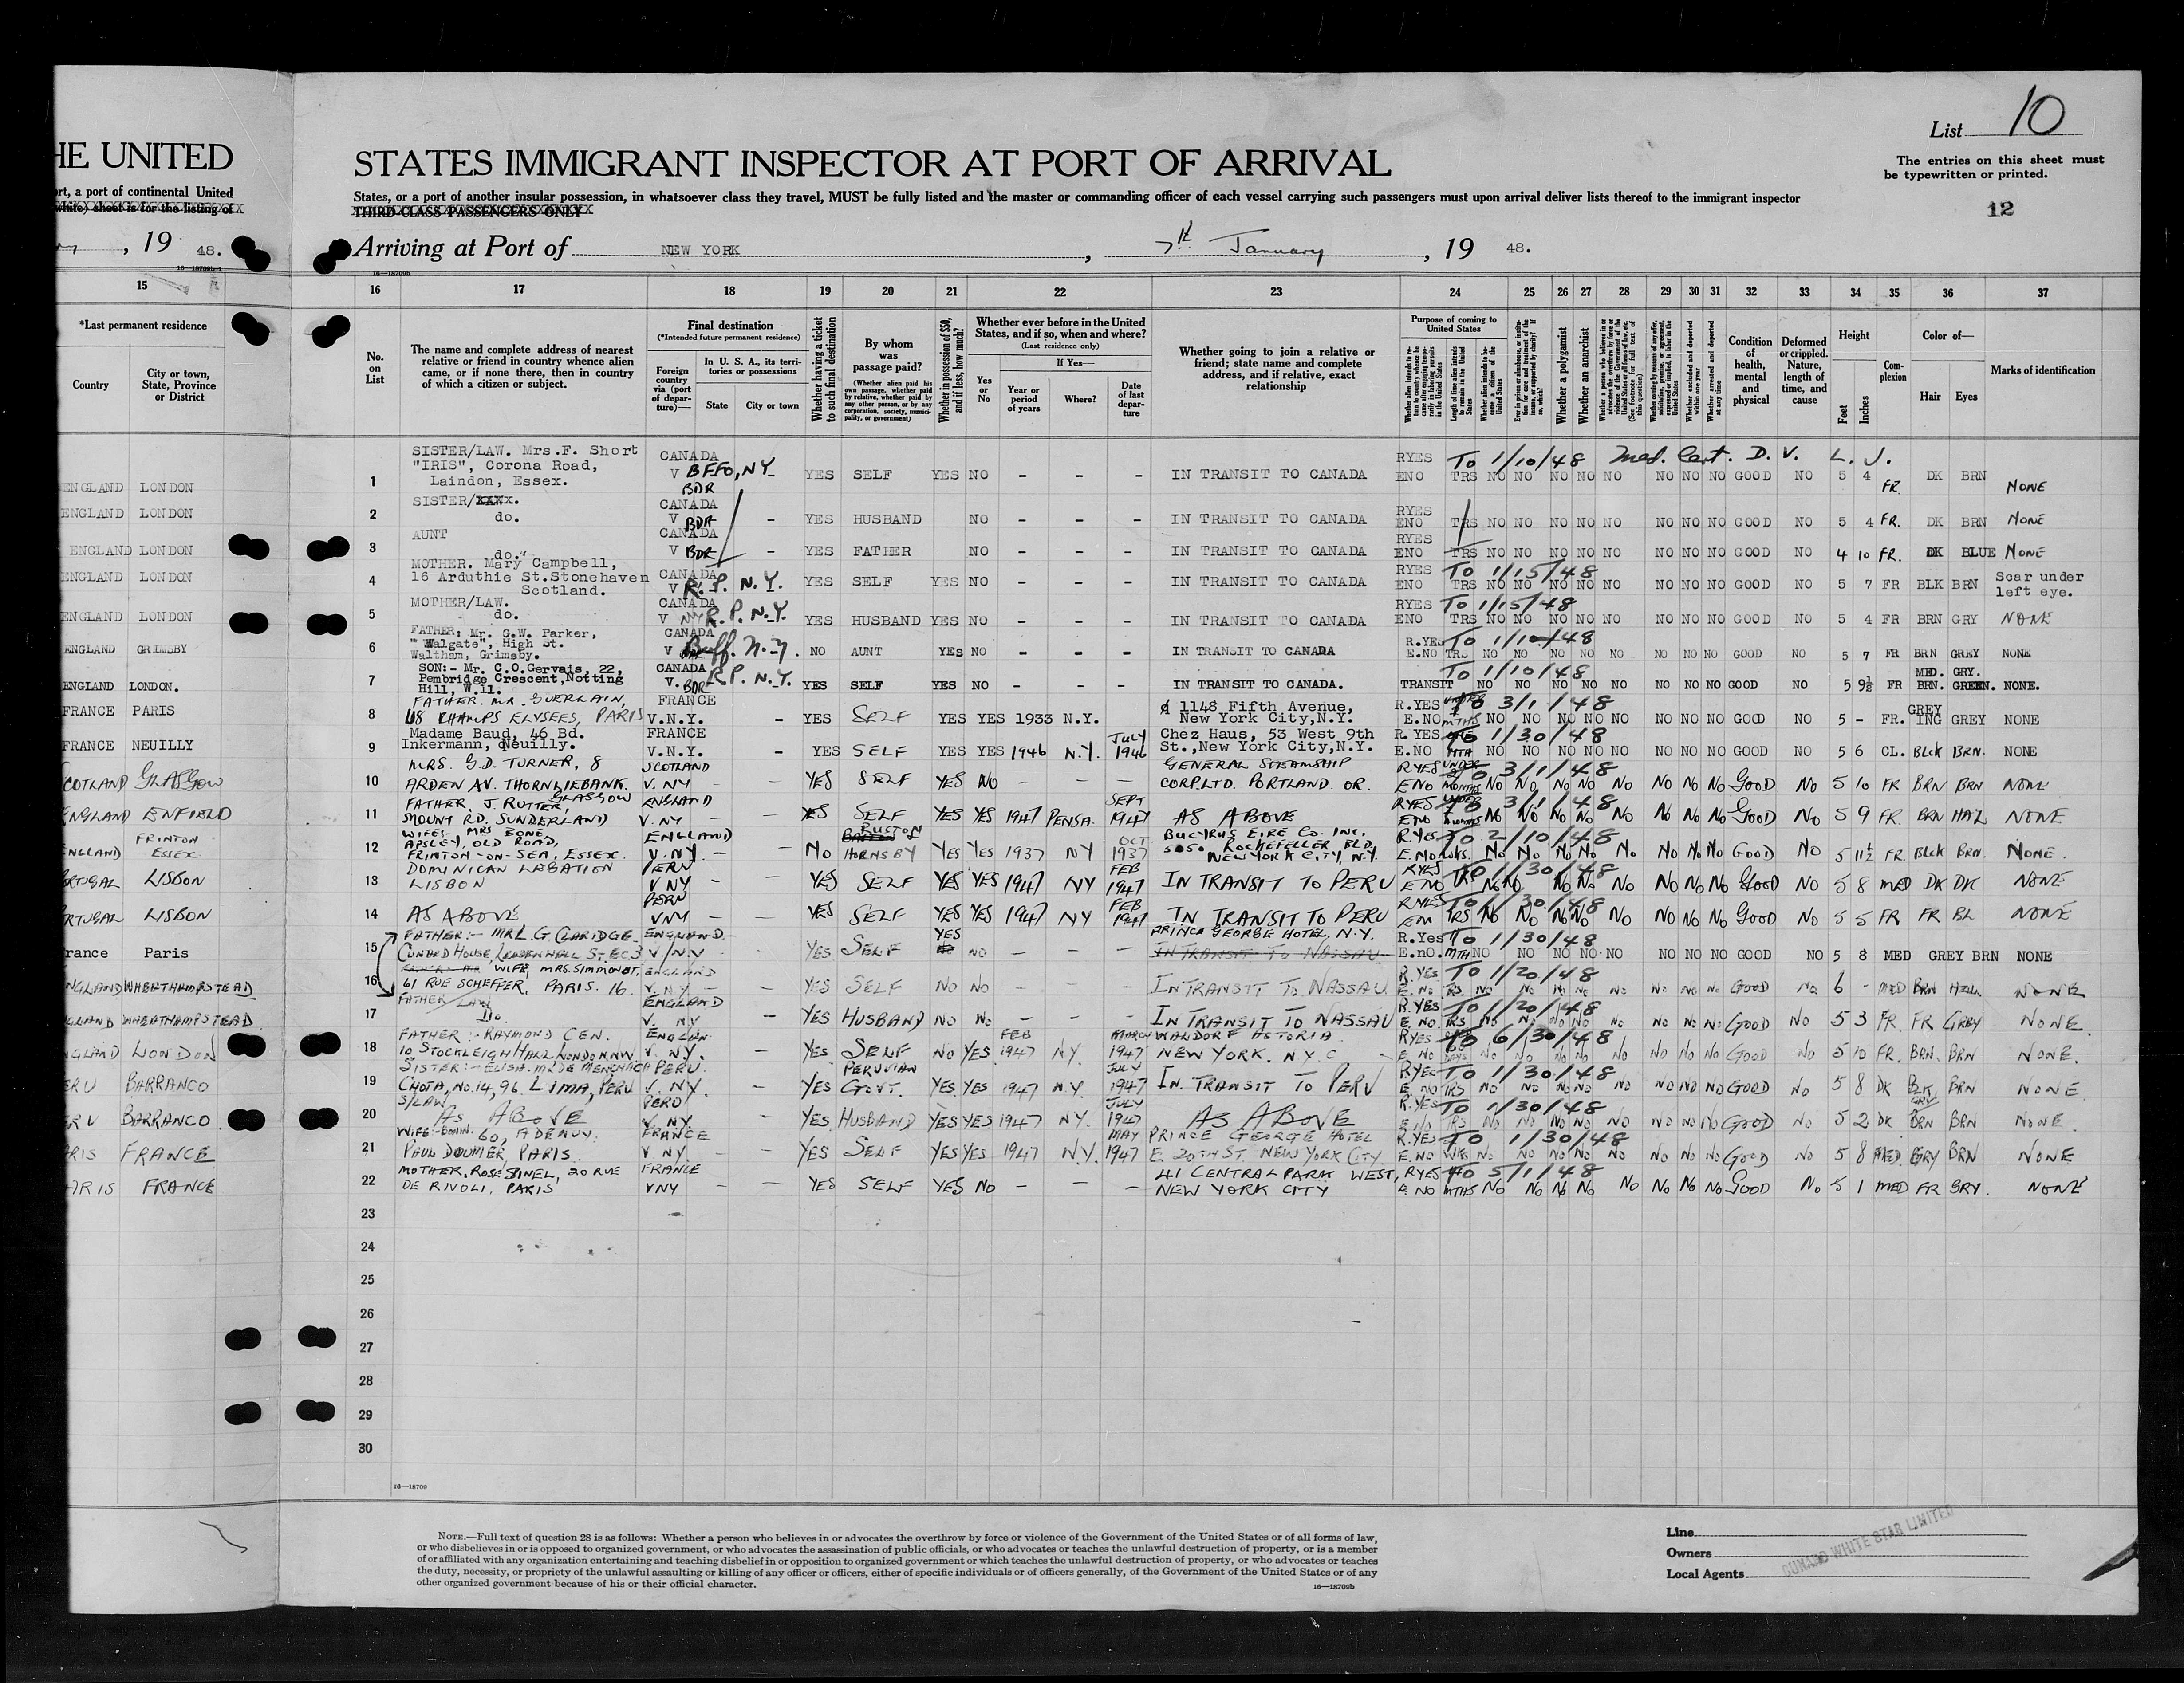 List 10
HE UNITED
STATES IMMIGRANT INSPECTOR AT PORT OF ARRIVAL
The entries on this sheet must
be typewritten or printed.
12
rt, a port of continental United
States, or a port of another insular possession, in whatsoever class they travel, MUST be fully listed and the master or commanding officer of each vessel carrying such passengers must upon arrival deliver lists thereof to the immigrant inspector
white) sheet is for the listing of
THIRD-CLASS PASSENGERS ONLY
, 19 48.
Arriving at Port of NEW YORK , 7th January , 19 48.
16—18709b-1
16—18709b
15 16 17 18 19 20 21 22 23 24 25 26 27 28 29 30 31 32 33 34 35 36 37
*Last permanent residence
Country
City or town, State, Province or District
No. on List
The name and complete address of nearest relative or friend in country whence alien came, or if none there, then in country of which a citizen or subject.
Final destination
(*Intended future permanent residence)
Foreign country via (port of departure)—
In U. S. A., its territories or possessions
State
City or town
Whether having a ticket to such final destination
By whom was passage paid?
(Whether alien paid his own passage, whether paid by relative, whether paid by any other person, or by any corporation, society, municipality, or government)
Whether in possession of $50, and if less, how much?
Whether ever before in the United States, and if so, when and where?
(Last residence only)
Yes or No
If Yes—
Year or period of years
Where?
Date of last departure
Whether going to join a relative or friend; state name and complete address, and if relative, exact relationship
Purpose of coming to United States
Whether alien intends to return to country whence he came after engaging temporarily in laboring pursuits in the United States
Length of time alien intends to remain in the United States
Whether alien intends to become a citizen of the United States
Whether a polygamist
Whether an anarchist
Condition of health, mental and physical
Deformed or crippled. Nature, length of time, and cause
Height
Feet
Inches
Complexion
Color of—
Hair
Eyes
Marks of identification
ENGLAND LONDON
1 SISTER/LAW. Mrs.F. Short
"IRIS", Corona Road,
Laindon, Essex.
CANADA V BFFO, NY BDR – YES SELF YES NO – – – IN TRANSIT TO CANADA RYES ENO To 1/10/48 Med. Cert. D. V. L. J.
TRS NO NO NO NO NO NO NO NO GOOD NO 5 4 FR. DK BRN NONE
ENGLAND LONDON
2 SISTER/XXXX.
do.
CANADA V BDR – YES HUSBAND NO – – – IN TRANSIT TO CANADA RYES ENO TRS NO NO NO NO NO NO NO NO GOOD NO 5 4 FR. DK BRN NONE
ENGLAND LONDON
3 AUNT
do."
CANADA V BDR – YES FATHER NO – – – IN TRANSIT TO CANADA RYES ENO TRS NO NO NO NO NO NO NO NO GOOD NO 4 10 FR. DK BLUE NONE
ENGLAND LONDON
4 MOTHER. Mary Campbell,
16 Arduthie St.Stonehaven
Scotland.
CANADA V R.P. N.Y. – YES SELF YES NO – – – IN TRANSIT TO CANADA RYES ENO To 1/15/48 TRS NO NO NO NO NO NO NO NO GOOD NO 5 7 FR BLK BRN Scar under left eye.
ENGLAND LONDON
5 MOTHER/LAW.
do.
CANADA V NY R.P. N.Y. – YES HUSBAND YES NO – – – IN TRANSIT TO CANADA RYES ENO To 1/15/48 TRS NO NO NO NO NO NO NO NO GOOD NO 5 4 FR BRN GRY NONE
ENGLAND GRIMSBY
6 FATHER: Mr. G.W. Parker,
"Walgate", High St.
Waltham, Grimsby.
CANADA V Buff. N.Y. NO AUNT YES NO IN TRANSIT TO CANADA R.YES E.NO To 1/10/48 TRS NO NO NO NO NO NO NO NO GOOD NO 5 7 FR BRN GREY NONE
ENGLAND LONDON.
7 SON:- Mr. C.O.Gervais, 22,
Pembridge Crescent,Notting
Hill, W.11.
CANADA V. BDR R.P. N.Y. YES SELF YES NO – – – IN TRANSIT TO CANADA. TRANSIT To 1/10/48 NO NO NO NO NO NO NO NO GOOD NO 5 9½ FR MED. BRN. GRY. GREEN. NONE.
FRANCE PARIS
8 FATHER. MR. GUERLAIN,
68 CHAMPS ELYSEES, PARIS
FRANCE V.N.Y. – YES SELF YES YES 1933 N.Y. 1148 Fifth Avenue,
New York City,N.Y.
R.YES E.NO To 3/1/48 MTHS NO NO NO NO NO NO NO NO GOOD NO 5 – FR. GREYING GREY NONE
FRANCE NEUILLY
9 Madame Baud, 46 Bd.
Inkermann, Neuilly.
FRANCE V.N.Y. – YES SELF YES YES 1946 N.Y. JULY 1946 Chez Haus, 53 West 9th
St.,New York City,N.Y.
R.YES E.NO To 1/30/48 MTH NO NO NO NO NO NO NO NO GOOD NO 5 6 CL. Blck BRN. NONE
SCOTLAND GLASGOW
10 MRS. G.D. TURNER, 8
ARDEN AV. THORNLIEBANK.
GLASGOW
SCOTLAND V. NY – YES SELF YES NO – – – GENERAL STEAMSHIP
CORP.LTD. PORTLAND OR.
RYES ENO UNDER To 3/1/48 MONTHS NO NO NO NO NO NO NO NO GOOD NO 5 10 FR BRN BRN NONE
ENGLAND ENFIELD
11 FATHER, J. RUTTER,
MOUNT RD. SUNDERLAND
ENGLAND V.NY – YES SELF YES YES 1947 PENSA. SEPT 1947 AS ABOVE RYES ENO To 3/1/48 MONTHS NO NO NO NO NO NO NO NO GOOD NO 5 9 FR. BRN HAZ NONE
ENGLAND FRINTON ESSEX
12 WIFE:- MRS BONE,
APSLEY, OLD ROAD,
FRINTON-ON-SEA, ESSEX.
ENGLAND V.NY. – – NO RUSTON HORNSBY YES YES 1937 NY OCT 1937 BUCYRUS EIRE CO. INC.
5050 ROCKEFELLER BLD.
NEW YORK CITY, N.Y.
R.YES E.NO To 2/10/48 WKS. NO NO NO NO NO NO NO NO GOOD NO 5 11½ FR. Blck BRN. NONE.
PORTUGAL LISBON
13 DOMINICAN LEGATION
LISBON
PERU V NY – – YES SELF YES YES 1947 NY FEB 1947 IN TRANSIT TO PERU RYES ENO To 1/30/48 TRS NO NO NO NO NO NO NO NO GOOD NO 5 8 MED DK DK NONE
PORTUGAL LISBON
14 AS ABOVE
PERU VNY – – YES SELF YES YES 1947 NY FEB 1947 IN TRANSIT TO PERU RYES To 1/30/48 TRS NO NO NO NO NO NO NO NO GOOD NO 5 5 FR FR BL NONE
France Paris
15 FATHER:- MR L.G. CLARIDGE.
CUNARD HOUSE, LEADENHALL ST. EC3
ENGLAND V/N.Y – YES SELF YES NO – – – PRINCE GEORGE HOTEL, N.Y.
IN TRANSIT TO NASSAU
R.Yes E.nO. To 1/30/48 MTH NO NO NO NO NO NO NO NO GOOD NO 5 8 MED GREY BRN NONE
ENGLAND WHEATHAMPSTEAD
16 WIFE, MRS. SIMMONDT.
61 RUE SCHEFFER, PARIS. 16.
ENGLAND V. NY – – YES SELF NO NO – – – IN TRANSIT TO NASSAU R.YES E. NO To 1/20/48 TRS NO NO NO NO NO NO NO NO GOOD NO 6 – MED BRN HZL NONE
ENGLAND WHEATHAMPSTEAD.
17 FATHER/LAW
Do.
ENGLAND V. NY – YES HUSBAND NO NO – – – IN TRANSIT TO NASSAU R.YES E. NO. To 1/20/48 TRS NO NO NO NO NO NO NO NO GOOD NO 5 3 FR. FR GREY NONE.
ENGLAND LONDON
18 FATHER:- RAYMOND CEN.
10 STOCKLEIGH HALL LONDON NW
ENGLAN V. NY. – YES SELF NO YES FEB 1947 NY. MARCH 1947 WALDORF ASTORIA.
NEW YORK. N.Y.C
RYES E. NO To 6/30/48 DAYS NO NO NO NO NO NO NO NO GOOD NO 5 10 FR. BRN. BRN NONE.
PERU BARRANCO
19 SISTER:- ELISA.
CHOTA, NO.14,96. LIMA, PERU
PERU. V. NY. – YES PERUVIAN GOVT. YES YES 1947 N.Y. JULY 1947 IN. TRANSIT TO PERU RYES E. NO To 1/30/48 TRS NO NO NO NO NO NO NO NO GOOD NO 5 8 DK BLK BRN NONE
PERU BARRANCO
20 S/LAW
AS ABOVE
PERU V NY – YES HUSBAND YES YES 1947 NY. JULY 1947 AS ABOVE R.YES E NO To 1/30/48 TRS NO NO NO NO NO NO NO NO GOOD NO 5 2 DK BRN BRN NONE.
PARIS FRANCE
21 WIFE 60,
PAUL DOUMER, PARIS.
FRANCE V NY. – – YES SELF YES YES 1947 N.Y. MAY 1947 PRINCE GEORGE HOTEL
E. 20TH ST. NEW YORK CITY.
R.YES E.NO To 1/30/48 WKS NO NO NO NO NO NO NO NO GOOD NO 5 8 MED. GRY BRN NONE
PARIS FRANCE
22 MOTHER, ROSE SINEL, 20 RUE
DE RIVOLI, PARIS
FRANCE VNY – – YES SELF YES NO – – – 41 CENTRAL PARK WEST,
NEW YORK CITY
RYES E NO To 5/1/48 MTHS NO NO NO NO NO NO NO NO GOOD NO 5 1 MED FR GRY. NONE
23
24
25
26
27
28
29
30
16—18709
NOTE.—Full text of question 28 is as follows: Whether a person who believes in or advocates the overthrow by force or violence of the Government of the United States or of all forms of law,
or who disbelieves in or is opposed to organized government, or who advocates the assassination of public officials, or who advocates or teaches the unlawful destruction of property, or is a member
of or affiliated with any organization entertaining and teaching disbelief in or opposition to organized government or which teaches the unlawful destruction of property, or who advocates or teaches
the duty, necessity, or propriety of the unlawful assaulting or killing of any officer or officers, either of specific individuals or of officers generally, of the Government of the United States or of any
other organized government because of his or their official character.
16—18709b
Line
Owners
Local Agents
CUNARD WHITE STAR LIMITED